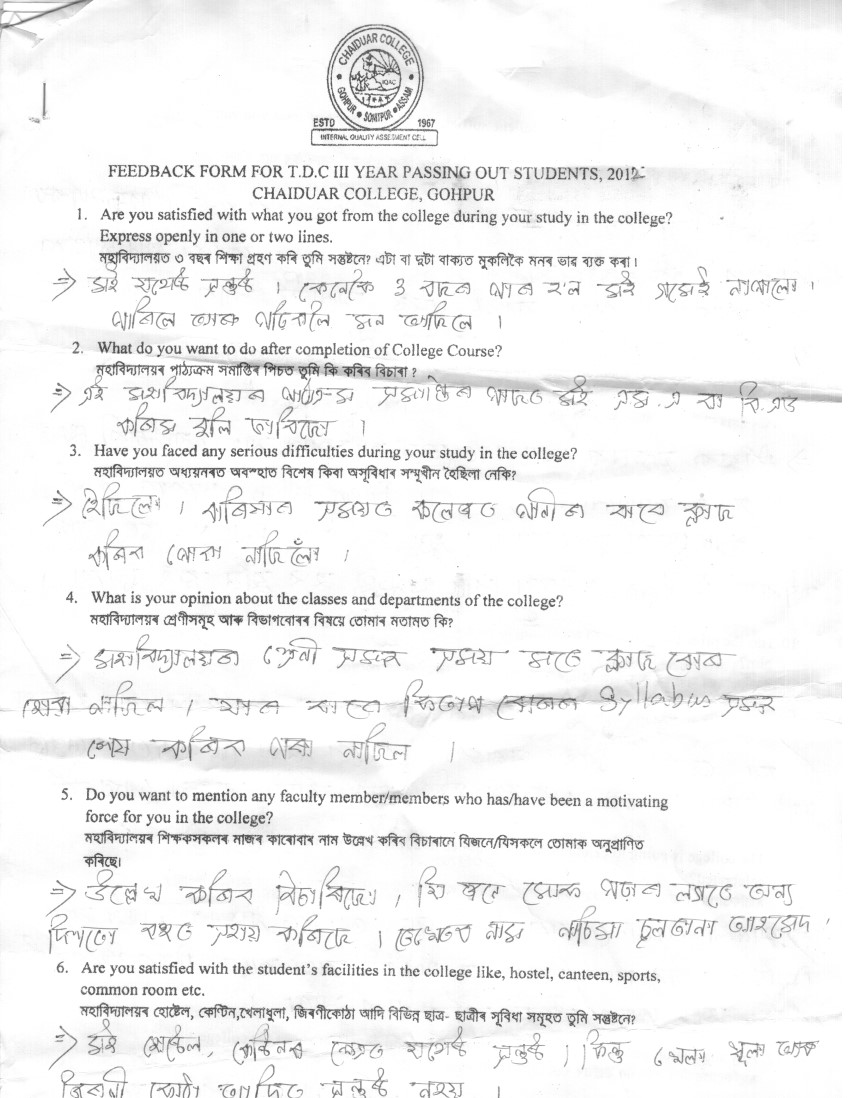 CHAIDUAR COLLEGE
IQAC
GOHPUR • SONITPUR • ASSAM
ESTD 1967
INTERNAL QUALITY ASSESMENT CELL
FEEDBACK FORM FOR T.D.C III YEAR PASSING OUT STUDENTS, 2012
CHAIDUAR COLLEGE, GOHPUR
1. Are you satisfied with what you got from the college during your study in the college?
Express openly in one or two lines.
মহাবিদ্যালয়ত ৩ বছৰ শিক্ষা গ্ৰহণ কৰি তুমি সন্তুষ্টনে? এটা বা দুটা বাক্যত মুকলিকৈ মনৰ ভাৱ ব্যক্ত কৰা।
⇒ মই যথেষ্ট সন্তুষ্ট । কেনেকৈ 3 বছৰ পাৰ হ'ল মই গমেই নাপালো ।
2. What do you want to do after completion of College Course?
মহাবিদ্যালয়ৰ পাঠ্যক্ৰম সমাপ্তিৰ পিচত তুমি কি কৰিব বিচাৰা ?
⇒ এই মহাবিদ্যালয়ৰ পাঠ্যক্ৰম মই এম. এ বা বি. এড
কৰিম বুলি ভাবিছো ।
3. Have you faced any serious difficulties during your study in the college?
মহাবিদ্যালয়ত অধ্যয়নৰত অবস্থাত বিশেষ কিবা অসুবিধাৰ সন্মুখীন হৈছিলা নেকি?
⇒ হৈছিলো । বাৰিষাৰ সময়ত কলেজত পানীৰ বাবে ক্লাছ
কৰিব পৰা নাছিলোঁ ।
4. What is your opinion about the classes and departments of the college?
মহাবিদ্যালয়ৰ শ্ৰেণীসমূহ আৰু বিভাগবোৰৰ বিষয়ে তোমাৰ মতামত কি?
⇒ মহাবিদ্যালয়ৰ শ্ৰেণী সমূহ সময় মতে ক্লাছ
হোৱা নাছিল । যাৰ বাবে Syllabus সমূহ
শেষ কৰিব পৰা নাছিল ।
5. Do you want to mention any faculty member/members who has/have been a motivating
force for you in the college?
মহাবিদ্যালয়ৰ শিক্ষকসকলৰ মাজৰ কাৰোবাৰ নাম উল্লেখ কৰিব বিচাৰানে যিজনে/যিসকলে তোমাক অনুপ্ৰাণিত
কৰিছে।
⇒ উল্লেখ কৰিব বিচাৰিছো, যি জনে মোক পঢ়াৰ লগতে অন্য
দিশতো বহুত সহায় কৰিছে । তেখেতৰ নাম
6. Are you satisfied with the student's facilities in the college like, hostel, canteen, sports,
common room etc.
মহাবিদ্যালয়ৰ হোষ্টেল, কেন্টিন,খেলাধুলা, জিৰণীকোঠা আদি বিভিন্ন ছাত্ৰ- ছাত্ৰীৰ সুবিধা সমূহত তুমি সন্তুষ্টনে?
⇒ মই হোষ্টেল, কেন্টিনৰ ক্ষেত্ৰত যথেষ্ট সন্তুষ্ট । কিন্তু খেলা ধূলা আৰু
জিৰণী কোঠা আদিত সন্তুষ্ট নহয় ।